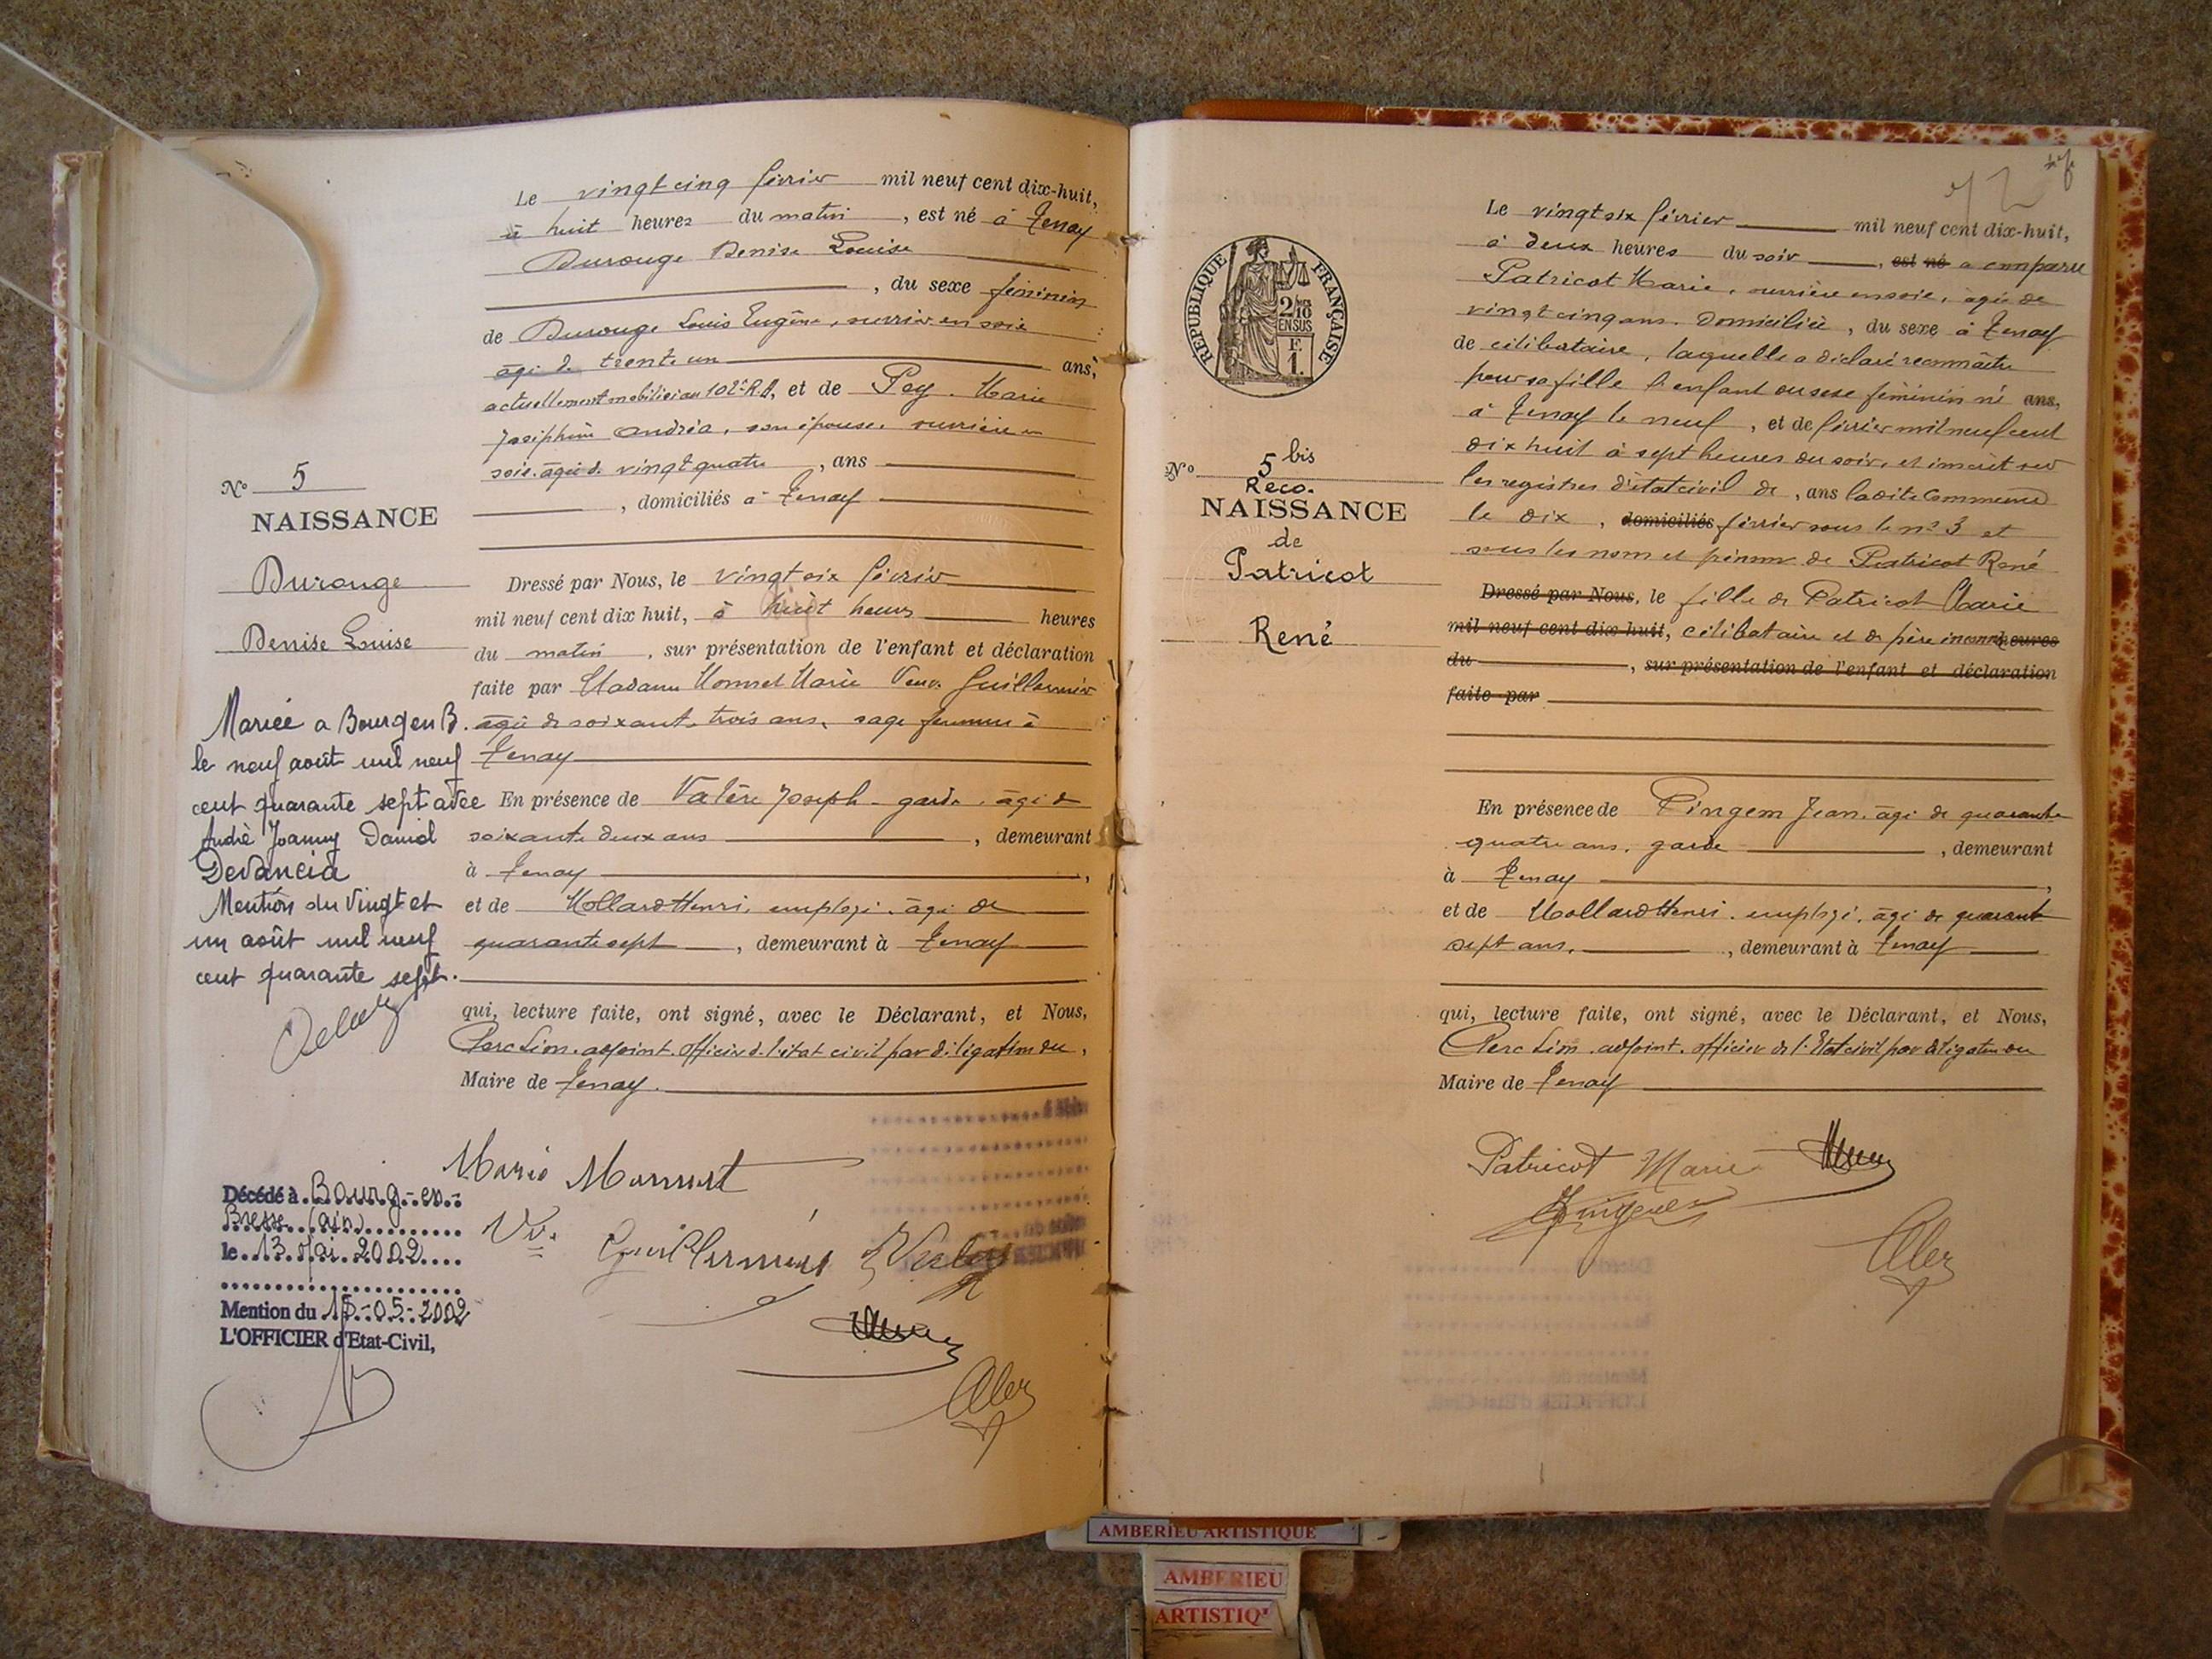 Le vingt cinq février mil neuf cent dix-huit,
à huit heures du matin, est né à Tenay
Durouge Denise Louise
, du sexe féminin
de Durouge Louis Eugène, ouvrier en soie
âgé de trente un ans,
actuellement mobilisé au 102e R.A, et de Pey Marie
Joséphine Andréa, son épouse, ouvrière en
soie âgée de vingt quatre, ans
, domiciliés à Tenay
N° 5
NAISSANCE
Durouge
Denise Louise
Dressé par Nous, le vingt six février
mil neuf cent dix huit, à huit heures heures
du matin, sur présentation de l'enfant et déclaration
faite par Madame Monnet Marie Veuve Guillermier
âgée de soixante trois ans, sage femme à
Tenay
En présence de Valère Joseph garde, âgé de
soixante deux ans, demeurant
à Tenay,
et de Mollard Henri, employé, âgé de
quarante sept, demeurant à Tenay
qui, lecture faite, ont signé, avec le Déclarant, et Nous,
Clerc Léon, adjoint, officier de l'état civil par délégation du,
Maire de Tenay.
Mariée a Bourg en B.
le neuf août mil neuf
cent quarante sept avec
André Joanny Daniel
Devancia
Mention du Vingt et
un août mil neuf
cent quarante sept.
Marie Monnet
Vve
Guillermier
Décédé à Bourg-en-
Bresse (ain)
le 13 Mai 2002
Mention du 15-05-2002
L'OFFICIER d'Etat-Civil,
72
RÉPUBLIQUE FRANÇAISE
2/10
EN SUS
F.
1.
Le vingt six février mil neuf cent dix-huit,
à deux heures du soir, est né a comparu
Patricot Marie, ouvrière en soie, âgée de
vingt cinq ans, domiciliée, du sexe à Tenay
de célibataire, laquelle a déclaré reconnaître
pour sa fille l'enfant du sexe féminin né ans,
à Tenay le neuf, et de février mil neuf cent
dix huit à sept heures du soir, et inscrit sur
les registres d'état civil de, ans ladite Commune
le dix, domiciliés février sous le n° 3 et
sous les nom et prénom de Patricot René
Dressé par Nous, le fille de Patricot Marie
mil neuf cent dix huit, célibataire et de père inconnu heures
du, sur présentation de l'enfant et déclaration
faite par
N° 5 bis
Reco.
NAISSANCE
de
Patricot
René
En présence de Pingem Jean, âgé de quarante
quatre ans, garde, demeurant
à Tenay,
et de Mollard Henri, employé, âgé de quarante
sept ans, demeurant à Tenay
qui, lecture faite, ont signé, avec le Déclarant, et Nous,
Clerc Léon, adjoint, officier de l'Etat civil par délégation du
Maire de Tenay
Patricot Marie
AMBERIEU ARTISTIQUE
AMBERIEU
ARTISTIQ